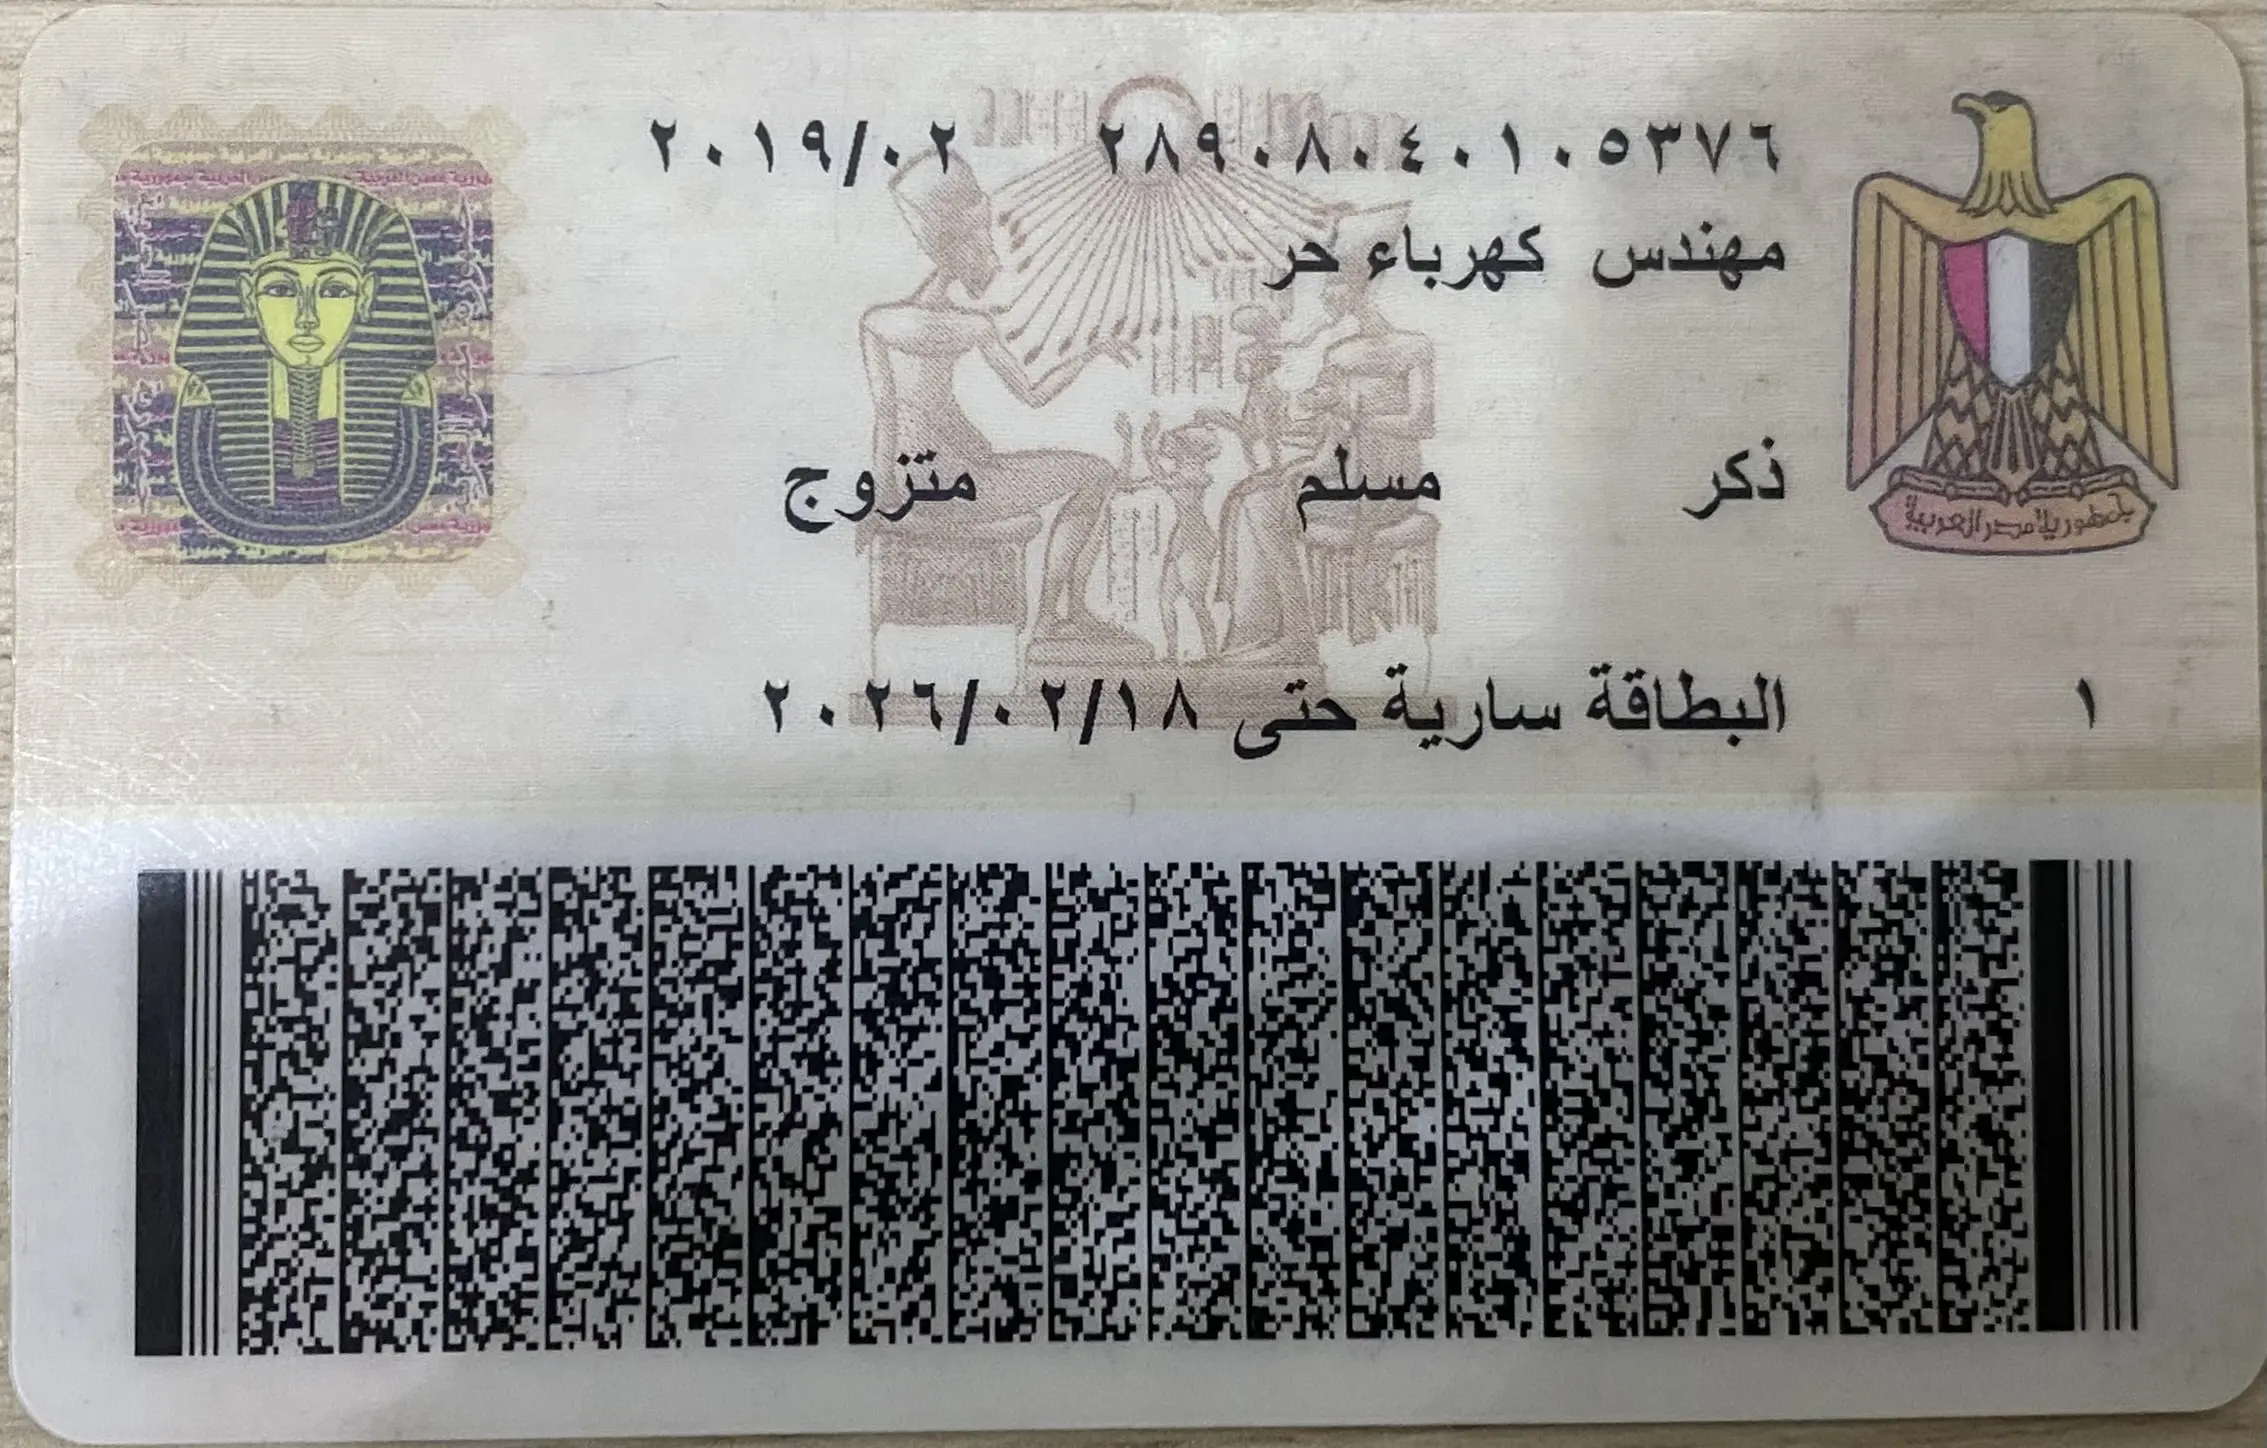 ٢٨٩٠٨٠٤٠١٠٥٣٧٦ ٢٠١٩/٠٢
مهندس كهرباء حر
ذكر مسلم متزوج
جمهورية مصر العربية
١ البطاقة سارية حتى ٢٠٢٦/٠٢/١٨